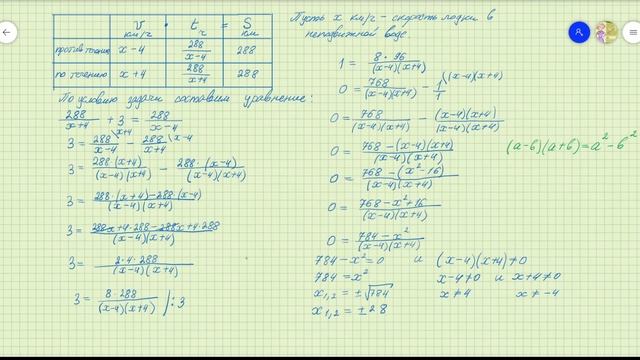 v · t = S
км/ч ч км
против течения x-4 288/(x-4) 288
по течению x+4 288/(x+4) 288
По условию задачи составим уравнение:
288/(x+4) + 3 = 288/(x-4)
3 = 288/(x-4) \x+4 - 288/(x+4) \x-4
3 = 288(x+4)/((x-4)(x+4)) - 288·(x-4)/((x-4)(x+4))
3 = (288·(x+4)-288·(x-4))/((x-4)(x+4))
3 = (288x+4·288-288x+4·288)/((x-4)(x+4))
3 = 2·4·288/((x-4)(x+4))
3 = 8·288/((x-4)(x+4)) |:3
Пусть x км/ч - скорость лодки в
неподвижной воде.
1 = 8·96/((x-4)(x+4))
0 = 768/((x-4)(x+4)) - 1/1 \(x-4)(x+4)
0 = 768/((x-4)(x+4)) - (x-4)(x+4)/((x-4)(x+4))
0 = (768-(x-4)(x+4))/((x-4)(x+4))
(a-б)(a+б)=a²-б²
0 = (768-(x²-16))/((x-4)(x+4))
0 = (768-x²+16)/((x-4)(x+4))
0 = (784-x²)/((x-4)(x+4))
784-x²=0 и (x-4)(x+4)≠0
784=x² x-4≠0 и x+4≠0
x₁,₂ = ±√784 x≠4 x≠-4
x₁,₂ = ±28